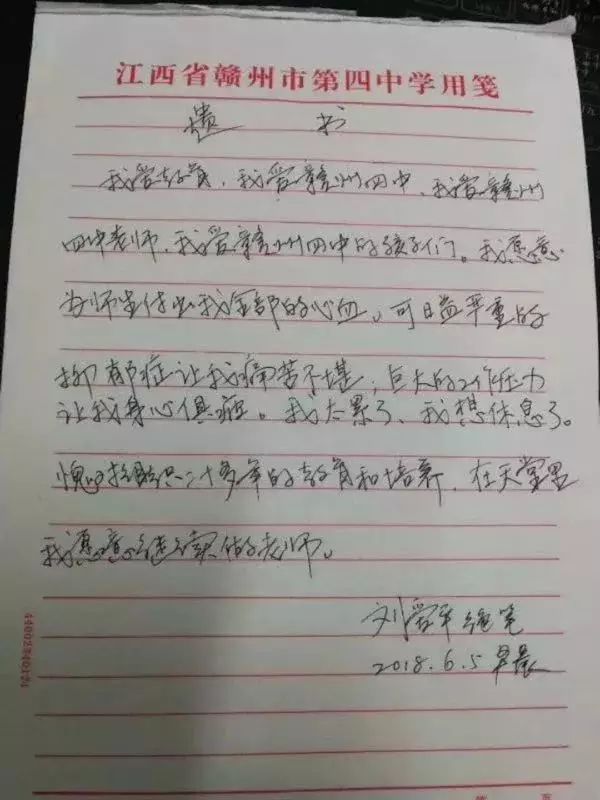 江西省赣州市第四中学用笺
遗 书
我爱教育，我爱赣州四中，我爱赣州
四中老师，我爱赣州四中的孩子们。我愿意
为师生付出我全部的心血。可日益严重的
抑郁症让我痛苦不堪；巨大的工作压力
让我身心俱疲。我太累了，我想休息了。
愧对组织二十多年的教育和培养，在天堂里
我愿意继续做老师。
刘爱平 绝笔
2018.6.5 早晨
4400234012